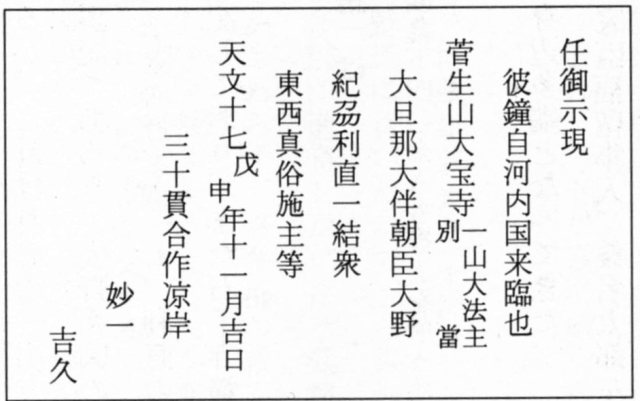 任御示現
彼鐘自河内国来臨也
菅生山大宝寺一山大法主
別當
大旦那大伴朝臣大野
紀刕利直一結衆
東西真俗施主等
天文十七戊申年十一月吉日
三十貫合作凉岸
妙一
吉久